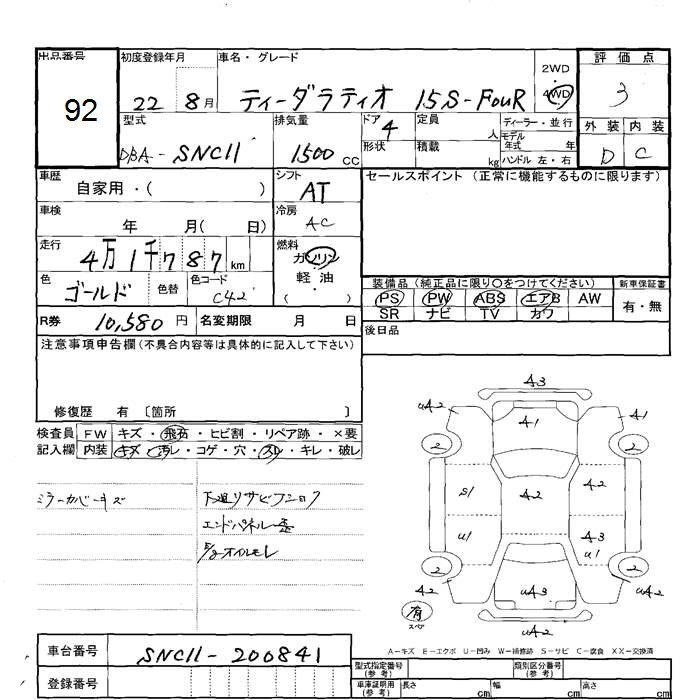 出品番号 初度登録年月 車名・グレード 2WD 4WD 評価点
92 22 8月 ティーダラティオ 15S-FouR 3
型式 排気量 ドア 4 定員 人 ディーラー・並行 外装 内装
DBA-SNC11 1500 CC 形状 積載 kg モデル年式 年 D C
ハンドル 左・右
車歴 自家用・( ) シフト AT セールスポイント (正常に機能するものに限ります)
車検 年 月( 日) 冷房 AC
走行 4万1千787 km 燃料 ガソリン 軽油 ( ・ )
色 ゴールド 色替 色コード C42
装備品(純正品に限り○をつけてください) 新車保証書
PS PW ABS エアB AW 有・無
SR ナビ TV カワ
R券 10,580 円 名変期限 月 日 後日品
注意事項申告欄(不具合内容等は具体的に記入して下さい)
修復歴 有 〔箇所 〕
検査員 FW キズ・飛石・ヒビ割・リペア跡・×要
記入欄 内装 キズ・汚レ・コゲ・穴・スレ・キレ・破レ
ミラーカバーキズ 下廻リサビフショク
エンドパネル歪
E/gオイルモレ
A3
uA2 A1 A1
2 2
S1 A2 A2
u1 A3
u1
2 2
A2 uA3 uA2
有 スペア uA2
A-キズ E-エクボ U-凹み W-補修跡 S-サビ C-腐食 XX-交換済
車台番号 SNC11-200841
登録番号
型式指定番号(参考) 類別区分番号(参考)
車庫証明用(参考) 長さ cm 幅 cm 高さ cm